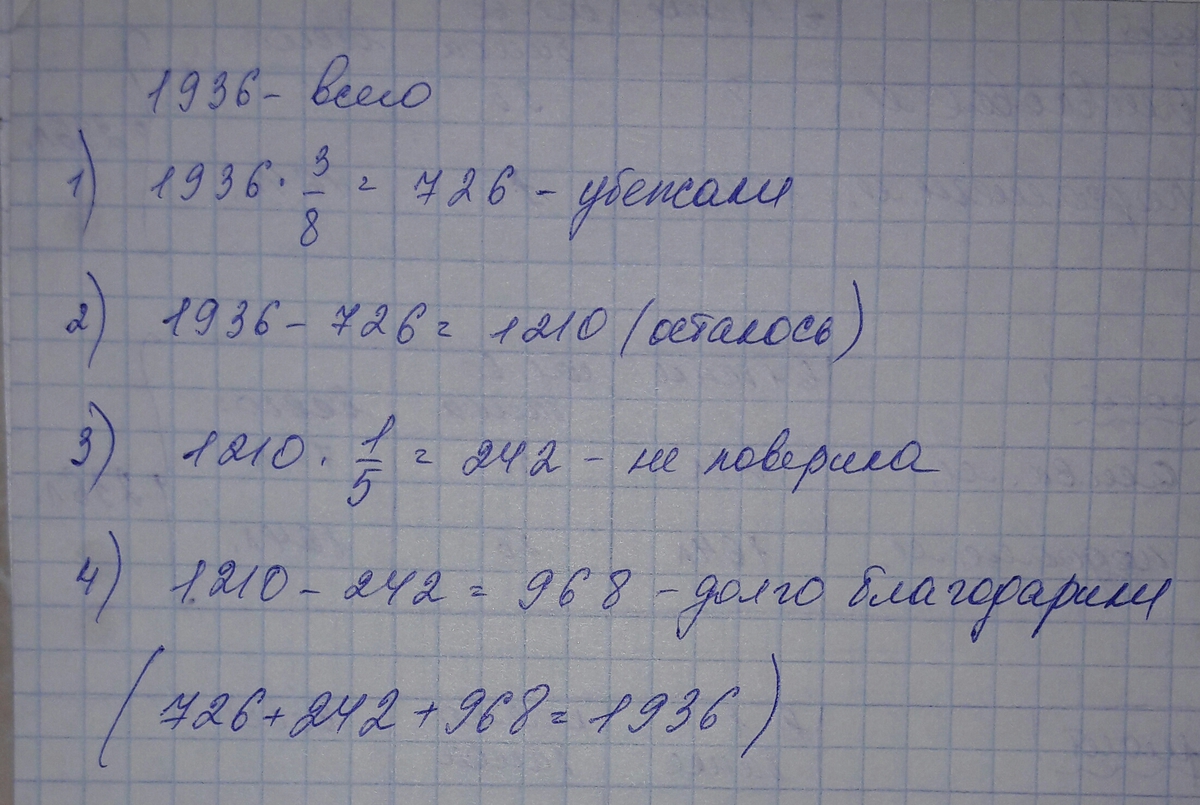 1936 - всего
1) 1936 · 3/8 = 726 - убежали
2) 1936 - 726 = 1210 (осталось)
3) 1210 · 1/5 = 242 - не поверила
4) 1210 - 242 = 968 - долго благодарили
(726 + 242 + 968 = 1936)